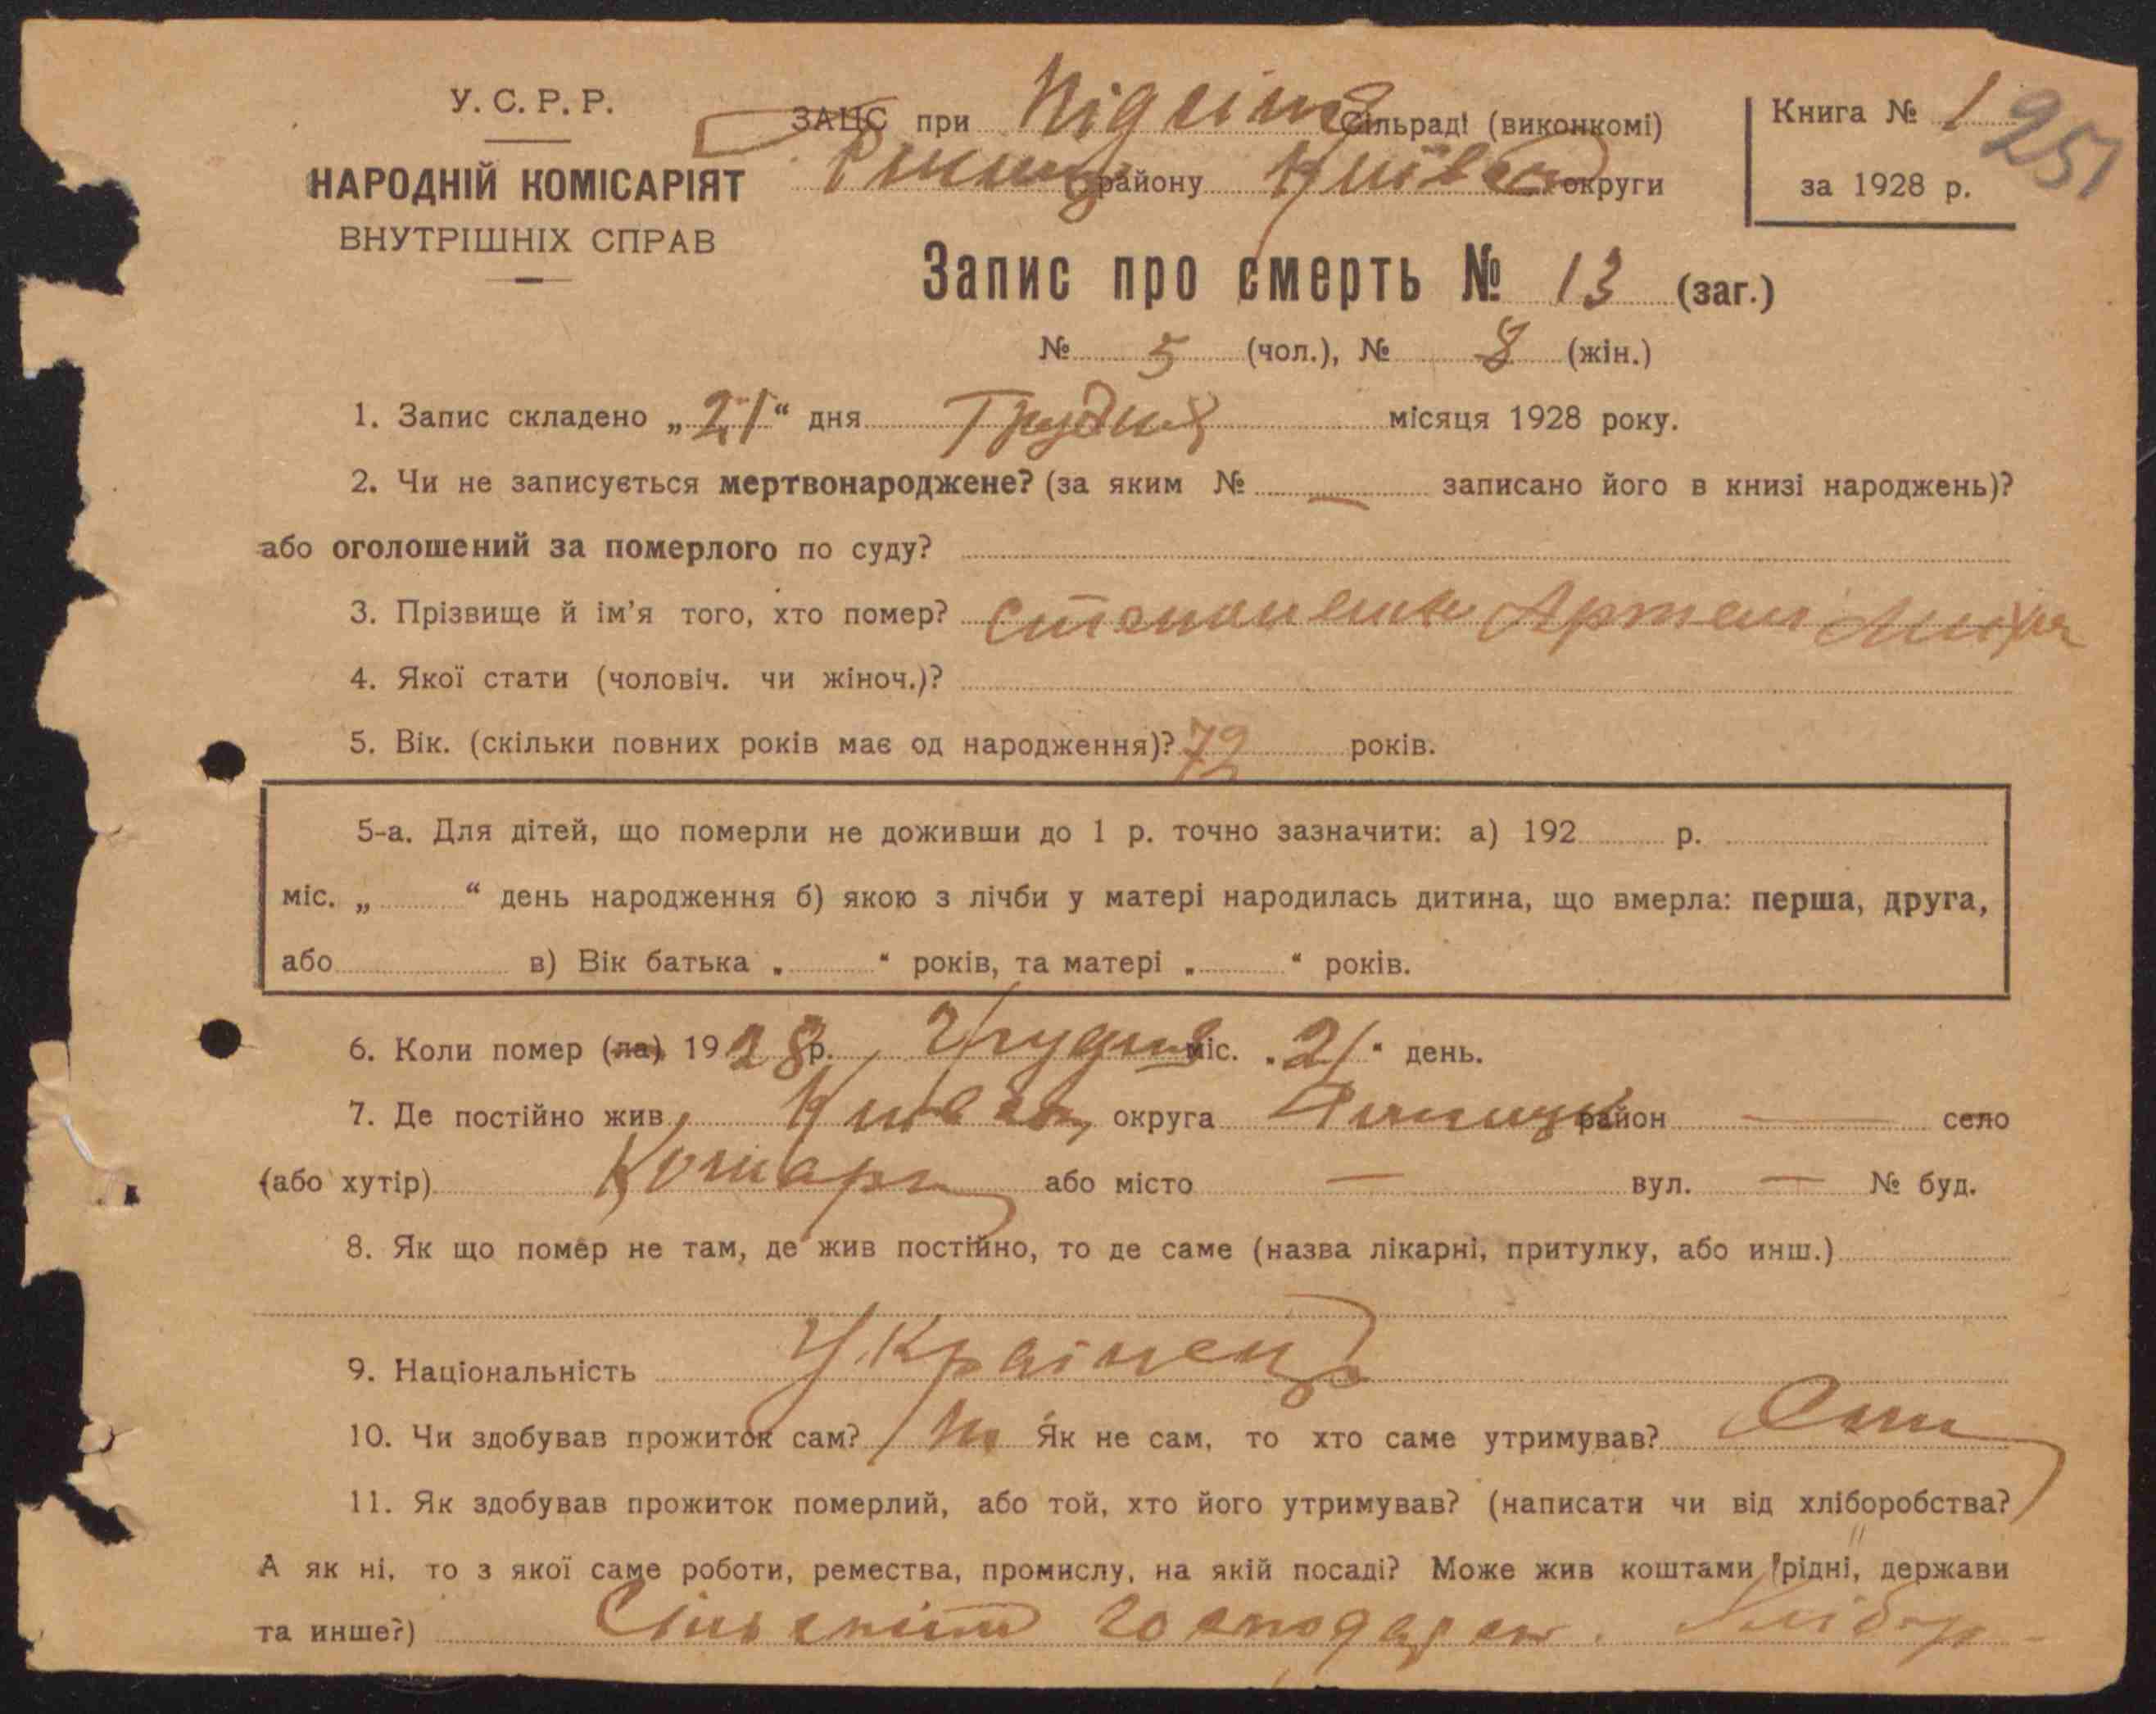 У. С. Р. Р.
НАРОДНІЙ КОМІСАРІЯТ
ВНУТРІШНІХ СПРАВ
ЗАЦС при Сільраді (виконкомі)
району Київськ округи
Книга № 1
251
за 1928 р.
Запис про смерть № 13 (заг.)
№ 5 (чол.), № 8 (жін.)
1. Запис складено „21“ дня Грудня місяця 1928 року.
2. Чи не записується мертвонароджене? (за яким № — записано його в книзі народжень)?
або оголошений за померлого по суду?
3. Прізвище й ім'я того, хто помер? Степаненко Артем
4. Якої стати (чоловіч. чи жіноч.)?
5. Вік. (скільки повних років має од народження)? 72 років.
5-а. Для дітей, що померли не доживши до 1 р. точно зазначити: а) 192 р.
міс. „ “ день народження б) якою з лічби у матері народилась дитина, що вмерла: перша, друга,
або в) Вік батька „ “ років, та матері „ “ років.
6. Коли помер (ла) 1928 р. Грудня міс. „21“ день.
7. Де постійно жив Київськ округа район — село
(або хутір) або місто — вул. — № буд.
8. Як що помер не там, де жив постійно, то де саме (назва лікарні, притулку, або инш.)
9. Національність Українець
10. Чи здобував прожиток сам? Ні Як не сам, то хто саме утримував? Син
11. Як здобував прожиток померлий, або той, хто його утримував? (написати чи від хліборобства?
А як ні, то з якої саме роботи, ремества, промислу, на якій посаді? Може жив коштами рідні, держави
та инше?) Сільським господарем. Хлібор